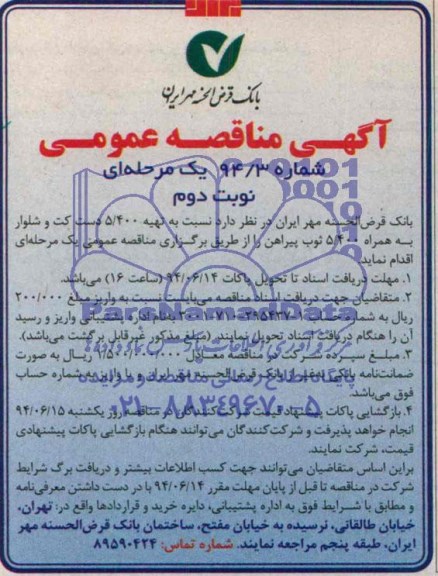 بانک قرض الحسنه مهر ایران
آگهی مناقصه عمومی
شماره ۹۴/۳ یک مرحله‌ای
نوبت دوم
بانک قرض‌الحسنه مهر ایران در نظر دارد نسبت به تهیه ۵/۴۰۰ دست کت و شلوار
به همراه ۵/۴۰۰ ثوب پیراهن را از طریق برگزاری مناقصه عمومی یک مرحله‌ای
اقدام نماید.
۱. مهلت دریافت اسناد تا تحویل پاکات ۹۴/۰۶/۱۴ (ساعت ۱۶) می‌باشد.
۲. متقاضیان جهت دریافت اسناد مناقصه می‌بایست نسبت به واریز مبلغ ۲۰۰/۰۰۰
ریال به شماره پشتیبانی واریز و رسید
آن را هنگام دریافت اسناد تحویل نمایند. (مبلغ مذکور غیرقابل برگشت می‌باشد).
۳. مبلغ سپرده شرکت در مناقصه معادل ریال به صورت
ضمانت‌نامه بانکی بانک قرض‌الحسنه مهر ایران و یا واریز به شماره حساب
فوق می‌باشد.
۴. بازگشایی پاکات پیشنهاد قیمت شرکت‌کنندگان در مناقصه روز یکشنبه ۹۴/۰۶/۱۵
انجام خواهد پذیرفت و شرکت‌کنندگان می‌توانند هنگام بازگشایی پاکات پیشنهادی
قیمت، شرکت نمایند.
براین اساس متقاضیان می‌توانند جهت کسب اطلاعات بیشتر و دریافت برگ شرایط
شرکت در مناقصه تا قبل از پایان مهلت مقرر ۹۴/۰۶/۱۴ با در دست داشتن معرفی‌نامه
و مطابق با شرایط فوق به اداره پشتیبانی، دایره خرید و قراردادها واقع در: تهران،
خیابان طالقانی، نرسیده به خیابان مفتح، ساختمان بانک قرض‌الحسنه مهر
ایران، طبقه پنجم مراجعه نمایند. شماره تماس: ۸۹۵۹۰۴۲۴
ParsNamadData
پایگاه اطلاع رسانی مناقصه و مزایده
۰۲۱-۸۸۳۴۹۶۷۰-۵